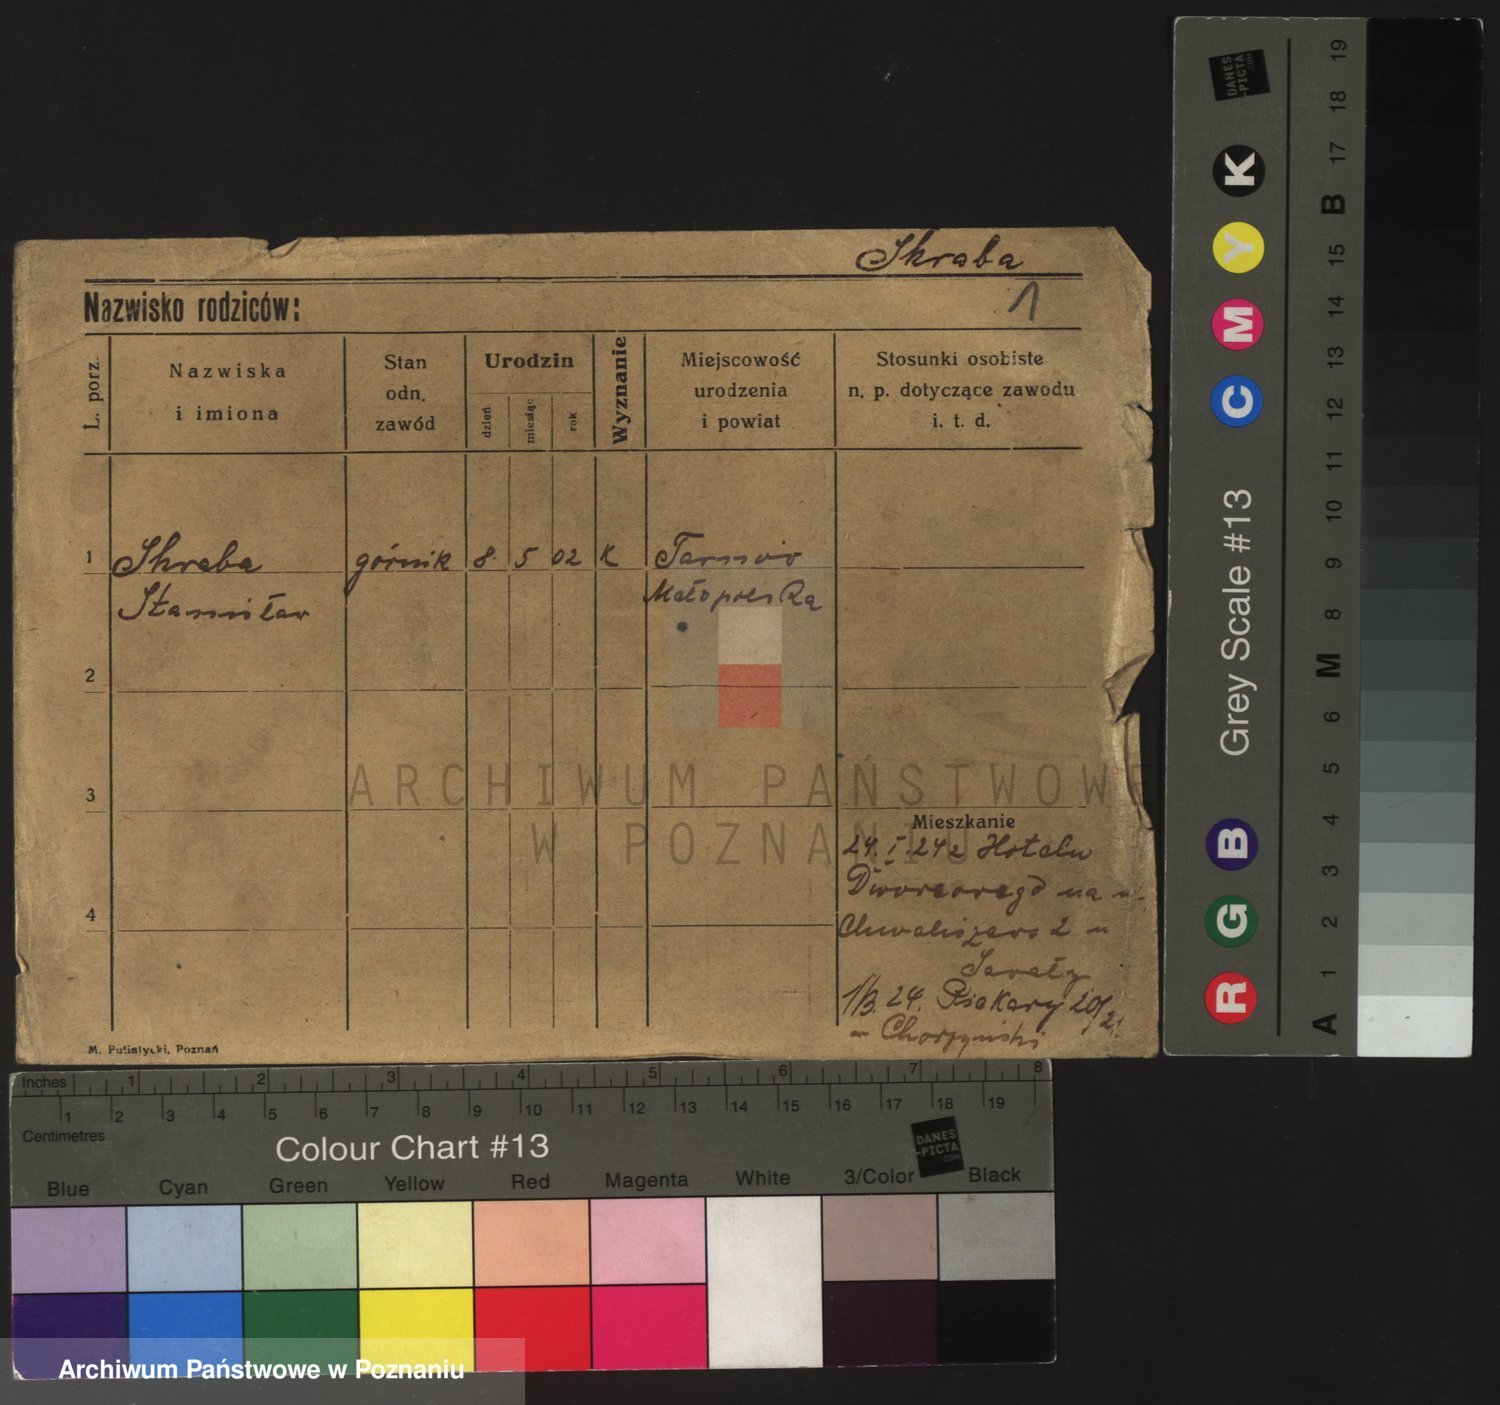 Skraba
1
Nazwisko rodziców:
L. porz.
Nazwiska
i imiona
Stan
odn.
zawód
Urodzin
dzień
miesiąc
rok
Wyznanie
Miejscowość
urodzenia
i powiat
Stosunki osobiste
n. p. dotyczące zawodu
i. t. d.
1 Skraba górnik 8 5 02 K Tarnów
Stanisław Małopolska
2
3
ARCHIWUM PAŃSTWOWE
W POZNANIU
Mieszkanie
24. I. 24 z Hotelu
Dworcowego na
Chwaliszewo 2 u
4
1/3. 24. Piekary 20/21
M. Putiatycki, Poznań
Inches 1 2 3 4 5 6 7 8
1 2 3 4 5 6 7 8 9 10 11 12 13 14 15 16 17 18 19
Centimetres
Colour Chart #13
DANES
-PICTA
.COM
Blue Cyan Green Yellow Red Magenta White 3/Color Black
Archiwum Państwowe w Poznaniu
DANES
-PICTA
.COM
R G B Grey Scale #13 C M Y K
A 1 2 3 4 5 6 M 8 9 10 11 12 13 14 15 B 17 18 19